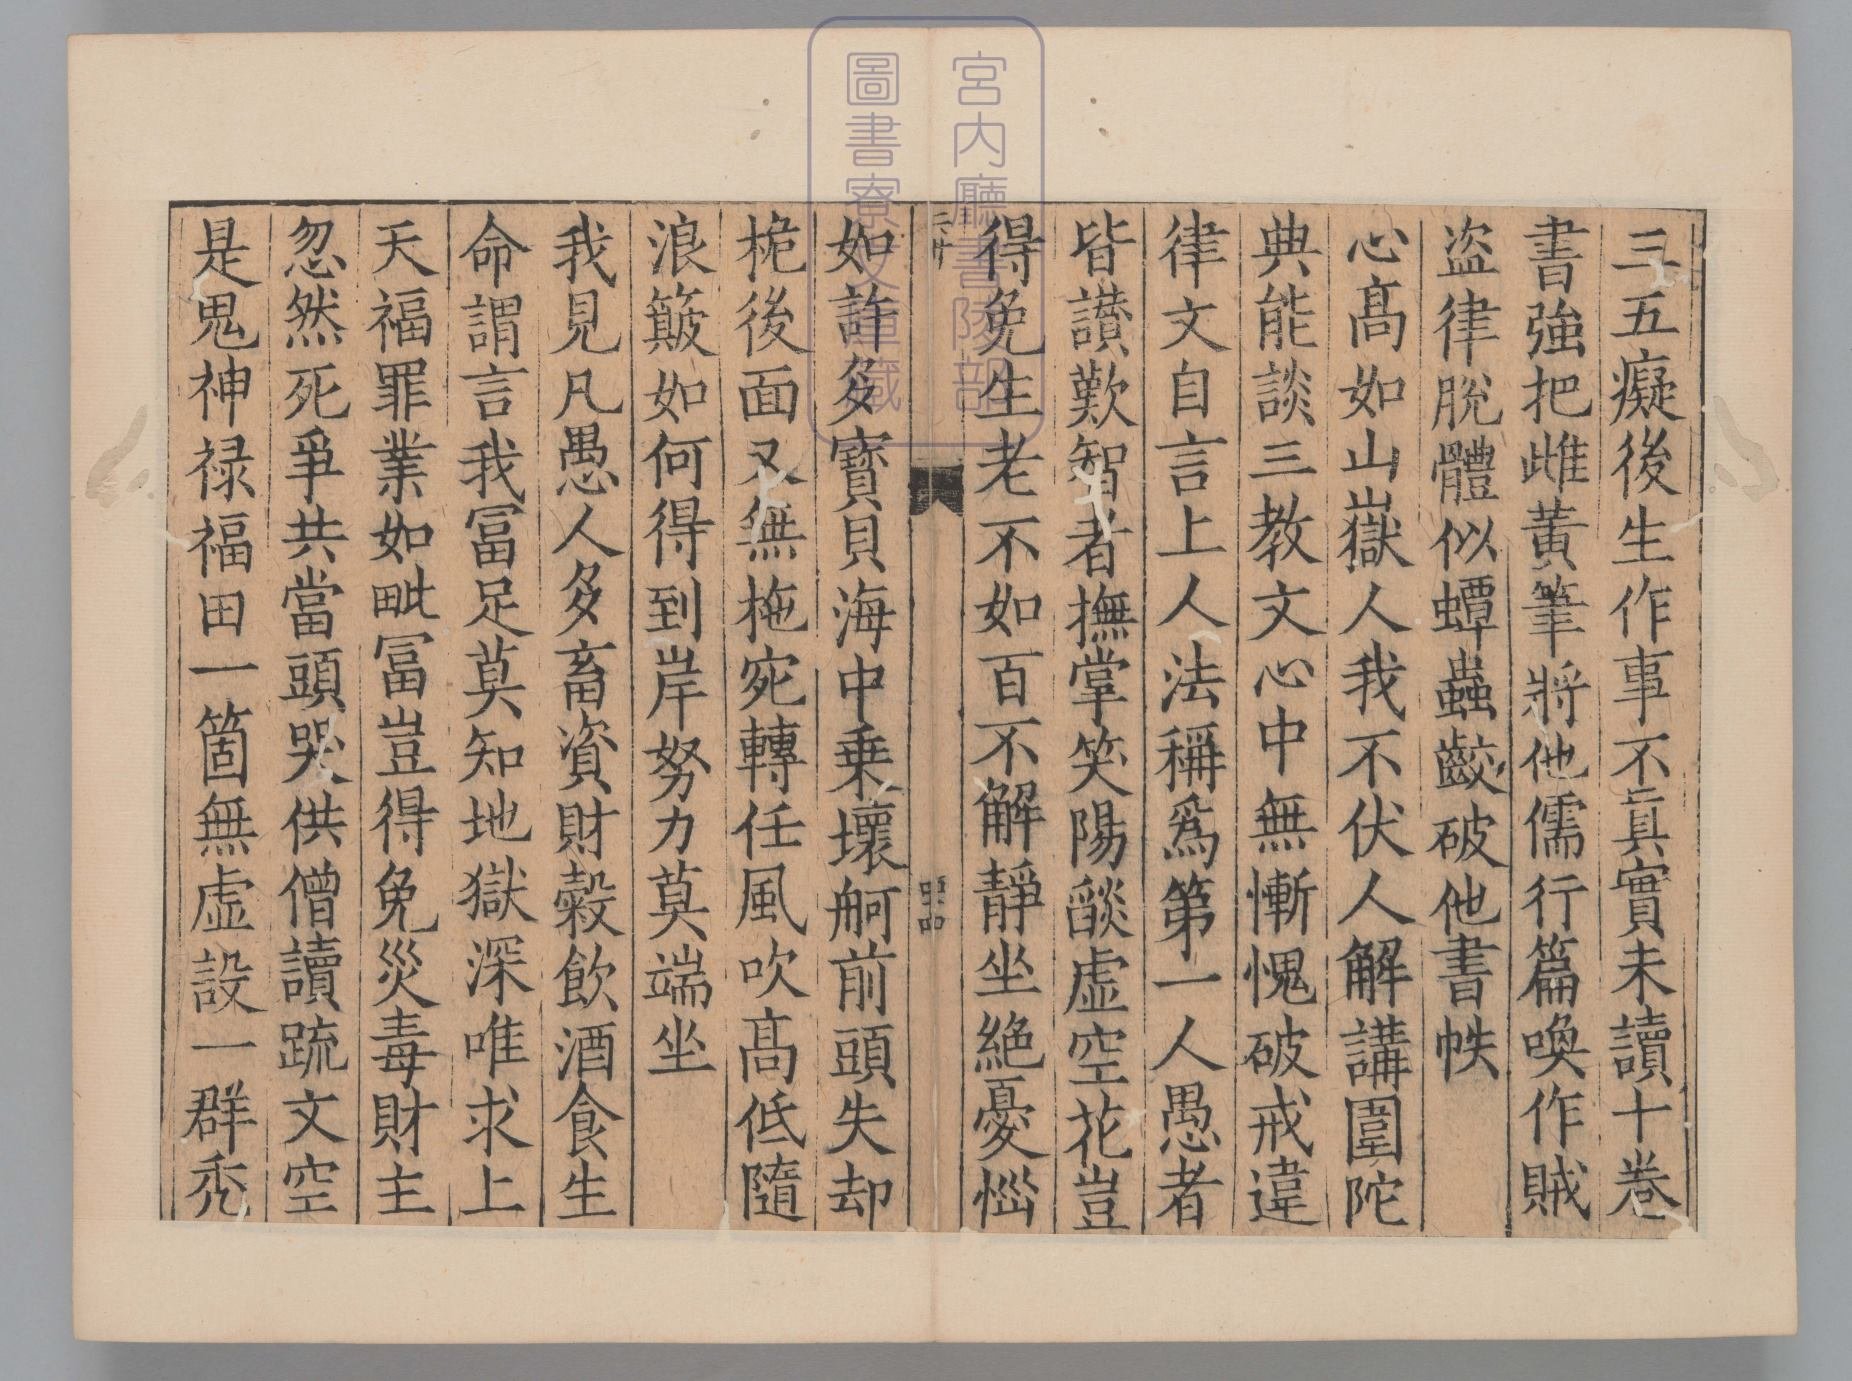 三五癡後生作事不真實未讀十卷
書強把雌黃筆將他儒行篇喚作賊
盗律脫體似蟫蟲齩破他書帙
心髙如山嶽人我不伏人解講圍陀
典能談三教文心中無慚愧破戒違
律文自言上人法稱為第一人愚者
皆讃歎智者撫掌笑陽燄虛空花豈
得免生老不如百不解靜坐絕憂惱
如許多寶貝海中乗壞舸前頭失却
桅後面又無柂宛轉任風吹髙低隨
浪簸如何得到岸努力莫端坐
我見凡愚人多畜資財穀飲酒食生
命謂言我冨足莫知地獄深唯求上
天福罪業如毗冨豈得免災毒財主
忽然死爭共當頭哭供僧讀䟽文空
是鬼神禄福田一箇無虛設一群禿
宮內廳書陵部
圖書寮文庫藏